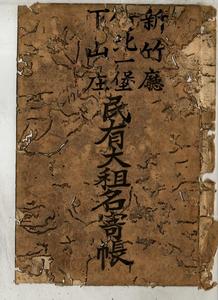 新竹廳
竹北一堡
下山庄
民有大租名寄帳